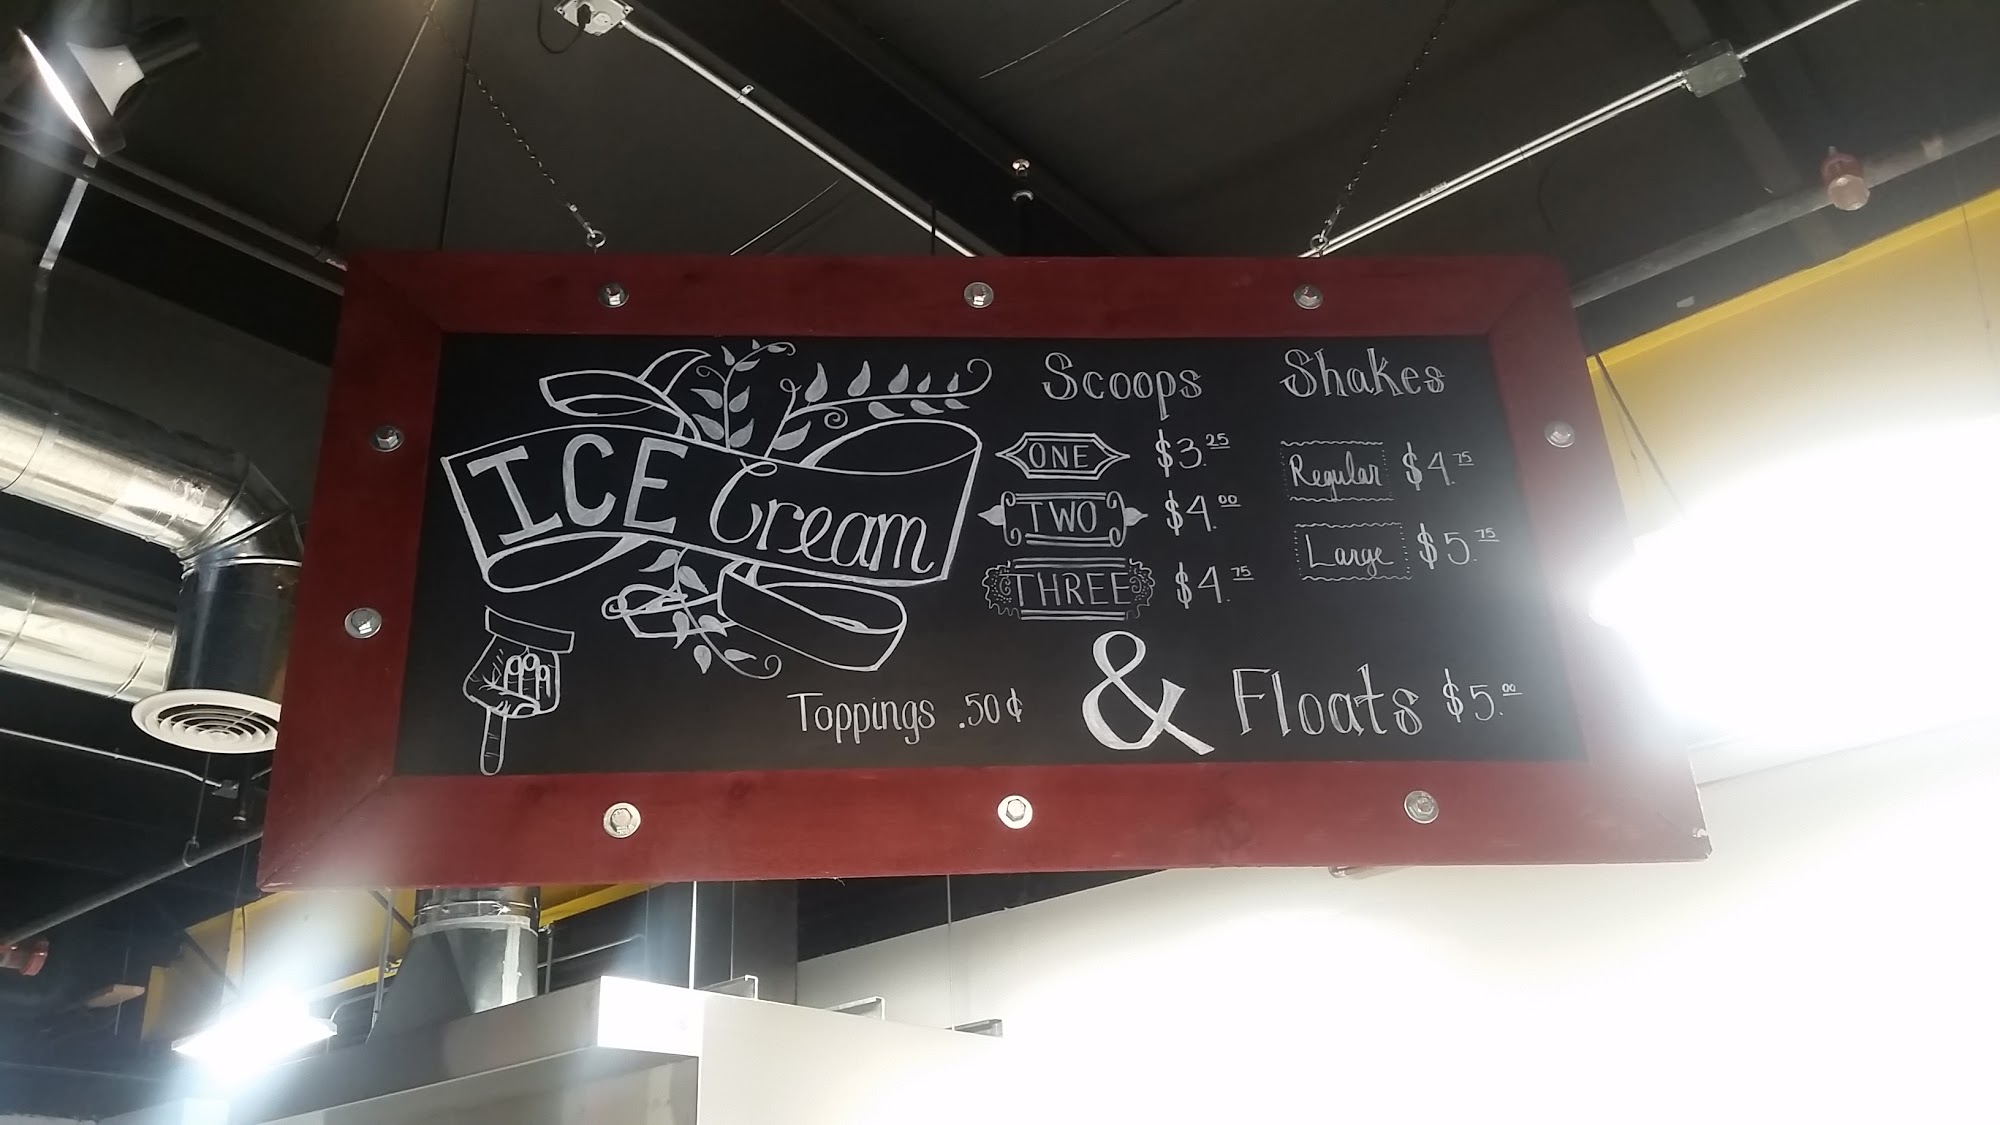 ICE Cream
Scoops
ONE $3.25
TWO $4.00
THREE $4.75
Shakes
Regular $4.75
Large $5.75
Toppings .50¢
& Floats $5.00